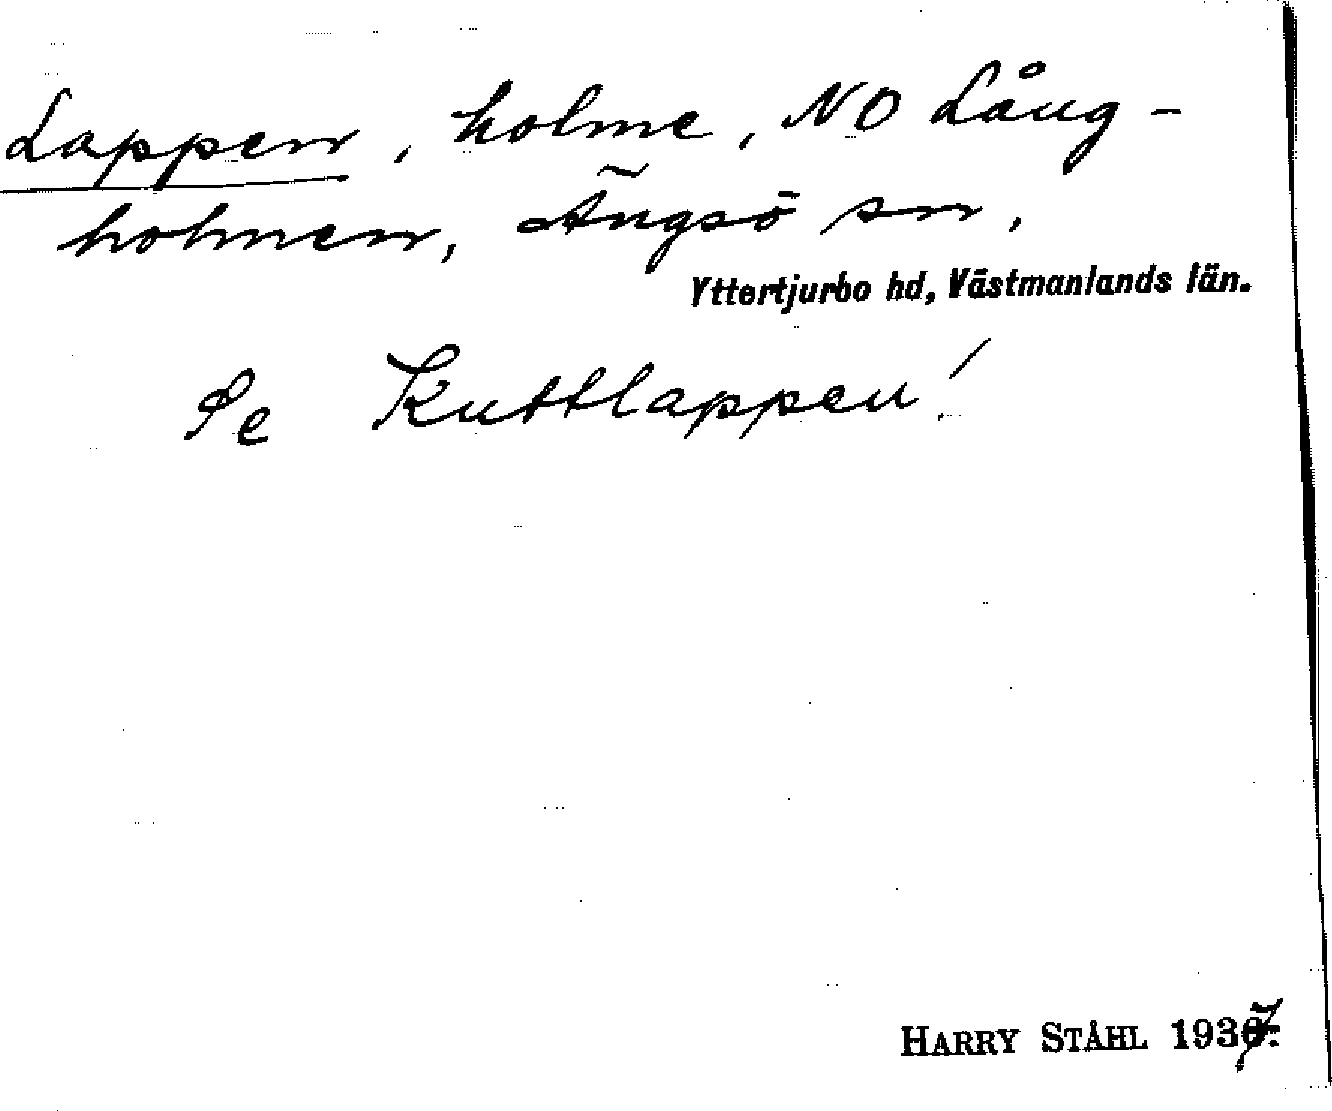 Lappen, holme, NO Lång-
holmen, Ängsö sn,
Yttertjurbo hd, Västmanlands län.
Se Kuttlappen!
HARRY STÅHL 1937